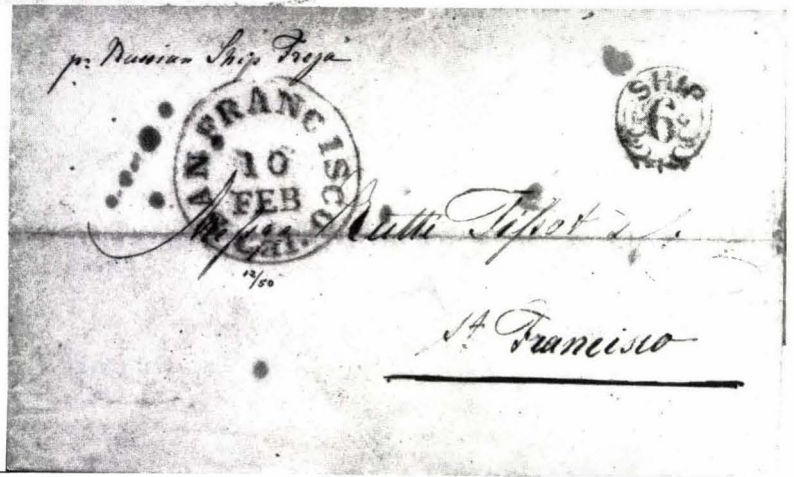 pr Russian Ship Freja
SAN FRANCISCO
10
FEB
Cal.
SHIP
6
Messrs Rutte Tissot & C.
12/50
St Francisco